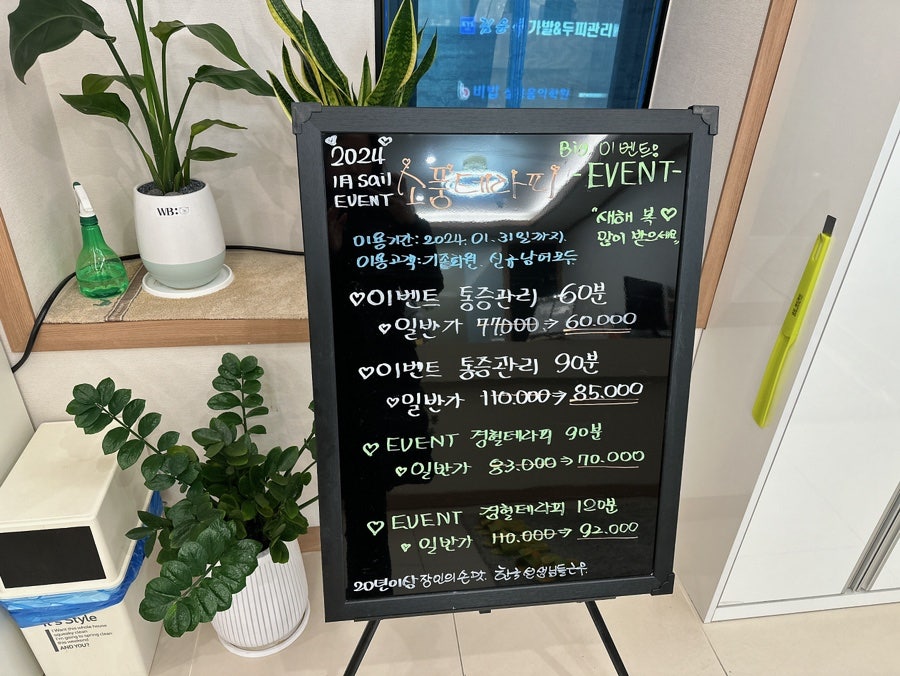 가발&두피관리
2024
1月 Sail
EVENT
소풍테라피
Big 이벤트!
-EVENT-
"새해 복♡
많이 받으세요"
이용기간: 2024. 01. 31일까지.
이용고객: 기존회원. 신규남여모두
♡이벤트 통증관리 60분
♡일반가 77.000→60.000
♡이벤트 통증관리 90분
♡일반가 110.000→85.000
♡ EVENT 경혈테라피 90분
♡일반가 83.000→70.000
♡ EVENT 경혈테라피 120분
♡ 일반가 110.000→92.000
20년이상 장인의손맛. 한국선생님들근무.
WB:
It's Style
I want this whole house
squeaky clean
I'm going to spring clean
this weekend
AND YOU?